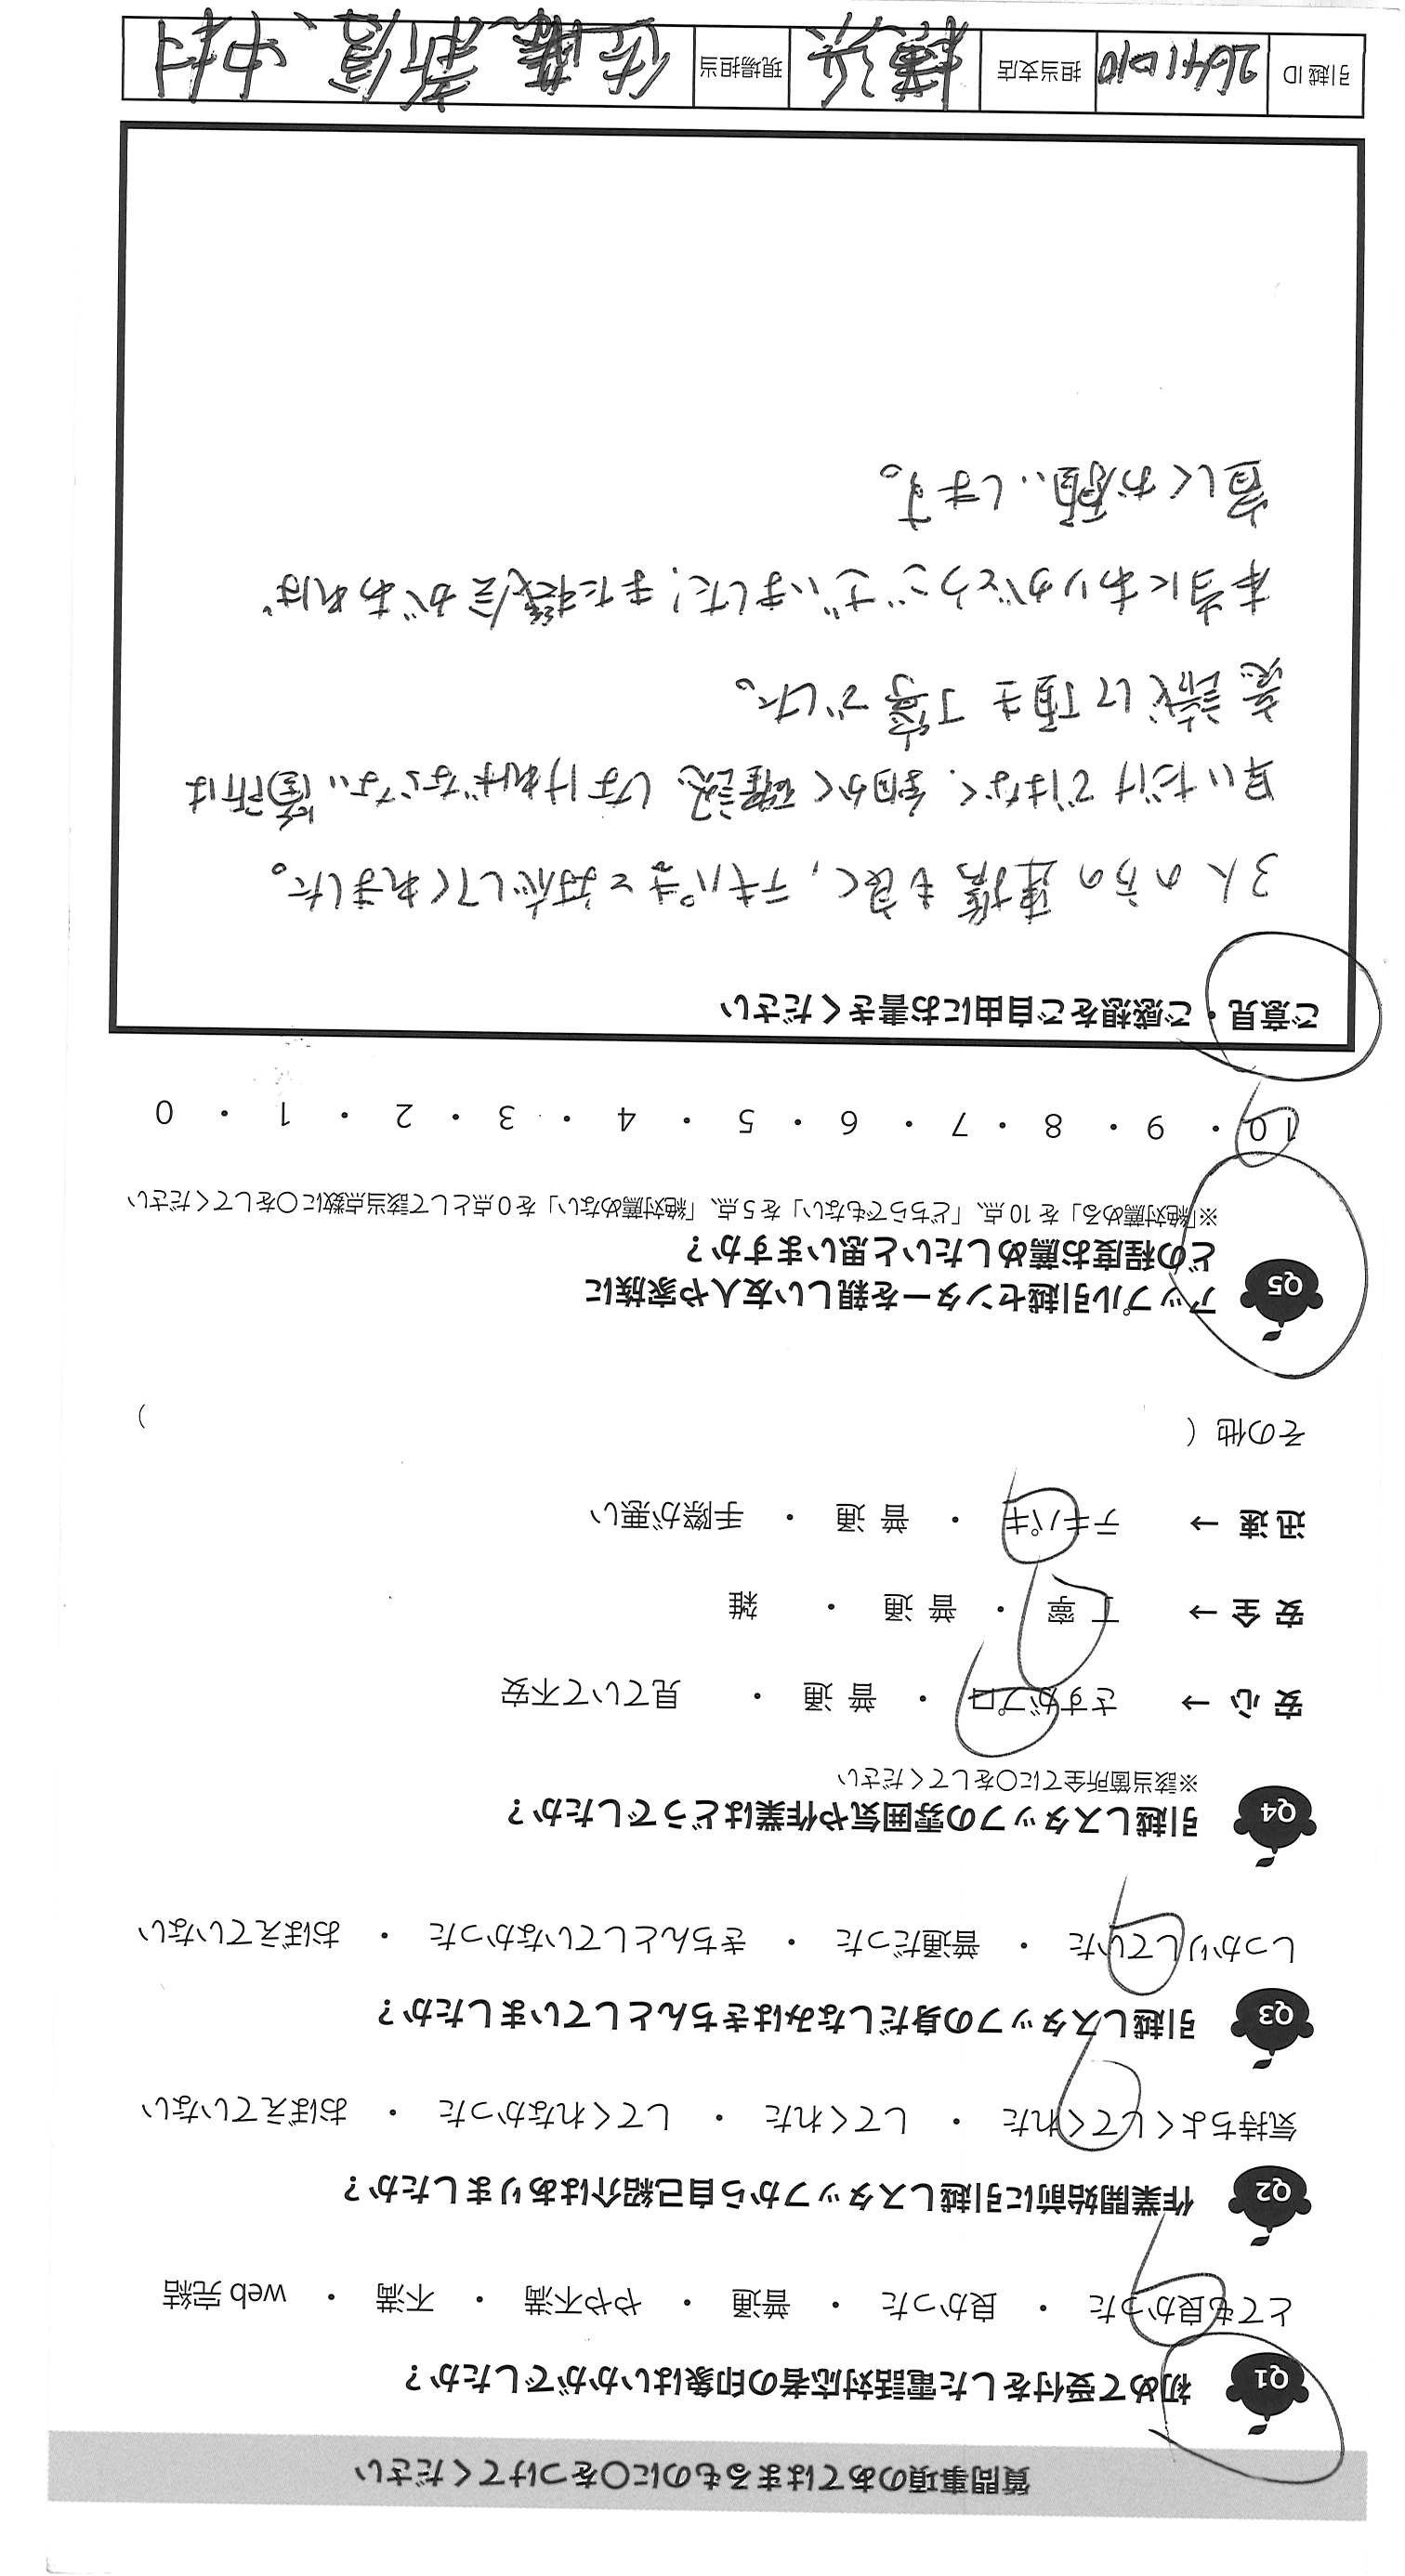 質問事項のあてはまるものに〇をつけてください
Q1 初めて受付をした電話対応者の印象はいかがでしたか？
とても良かった ・ 良かった ・ 普通 ・ やや不満 ・ 不満 ・ web 完結
Q2 作業開始前に引越しスタッフから自己紹介はありましたか？
気持ちよくしてくれた ・ してくれた ・ してくれなかった ・ おぼえていない
Q3 引越しスタッフの身だしなみはきちんとしていましたか？
しっかりしていた ・ 普通だった ・ きちんとしていなかった ・ おぼえていない
Q4 引越しスタッフの雰囲気や作業はどうでしたか？
※該当箇所全てに〇をしてください
安 心 → さすがプロ ・ 普 通 ・ 見ていて不安
安 全 → 丁 寧 ・ 普 通 ・ 雑
迅 速 → テキパキ ・ 普 通 ・ 手際が悪い
その他（ ）
Q5 アップル引越センターを親しい友人や家族に
どの程度お薦めしたいと思いますか？
※「絶対薦める」を 10 点、「どちらでもない」を 5 点、「絶対薦めない」を 0 点として該当点数に〇をしてください
10 ・ 9 ・ 8 ・ 7 ・ 6 ・ 5 ・ 4 ・ 3 ・ 2 ・ 1 ・ 0
ご意見・ご感想をご自由にお書きください
3人の方の連携も良く、テキパキと対応してくれました。
早いだけではなく、細かく確認しなければならない箇所は
意識して頂き丁寧でした。
本当にありがとうございました！また機会があれば
宜しくお願いします。
引越 ID 2641010 担当支店 横浜 現場担当 佐藤、新倉、中村